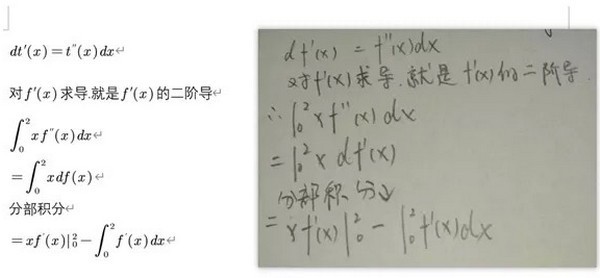 dt'(x)=t''(x)dx
对f'(x)求导.就是f'(x)的二阶导
∫₀²xf''(x)dx
=∫₀²xdf(x)
分部积分
=xf'(x)|₀²-∫₀²f'(x)dx
df'(x) = f''(x)dx
对f'(x)求导.就是f'(x)的二阶导.
∴∫₀²xf''(x)dx
=∫₀²x df'(x)
分部积分
=xf'(x)|₀²-∫₀²f'(x)dx